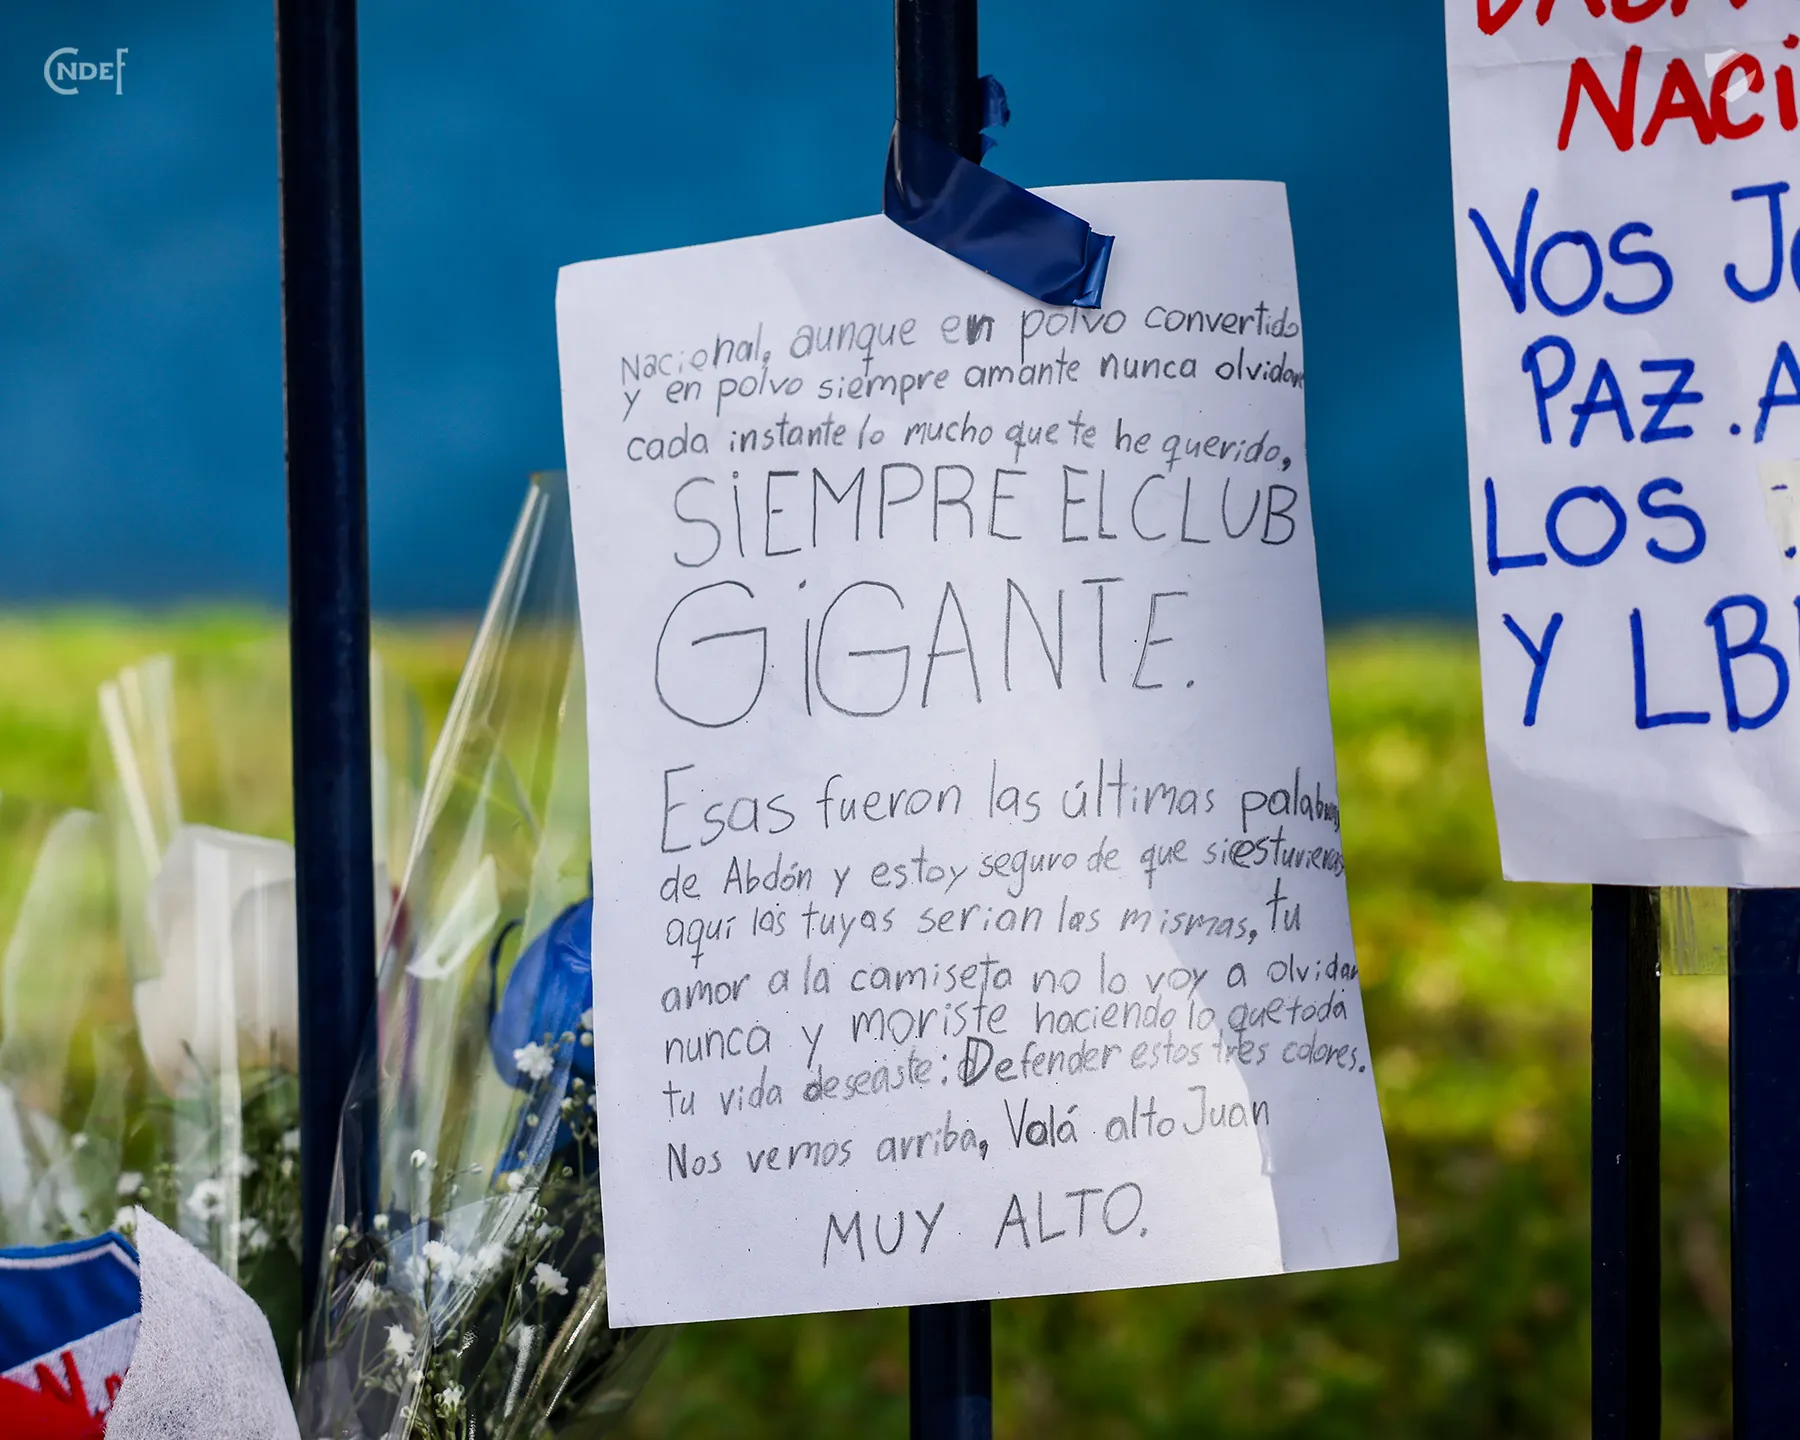 CNDEF
Nacional, aunque en polvo convertido
y en polvo siempre amante nunca olvidare
cada instante lo mucho que te he querido,
SiEMPRE EL CLUB
GiGANTE.
Esas fueron las últimas palabras
de Abdón y estoy seguro de que si estuvieras
aquí las tuyas serian las mismas, tu
amor a la camiseta no lo voy a olvidar
nunca y moriste haciendo lo que toda
tu vida deseaste: Defender estos tres colores.
Nos vemos arriba, Volá alto Juan
MUY ALTO.
NACi
VOS J
PAZ. A
LOS
Y LB